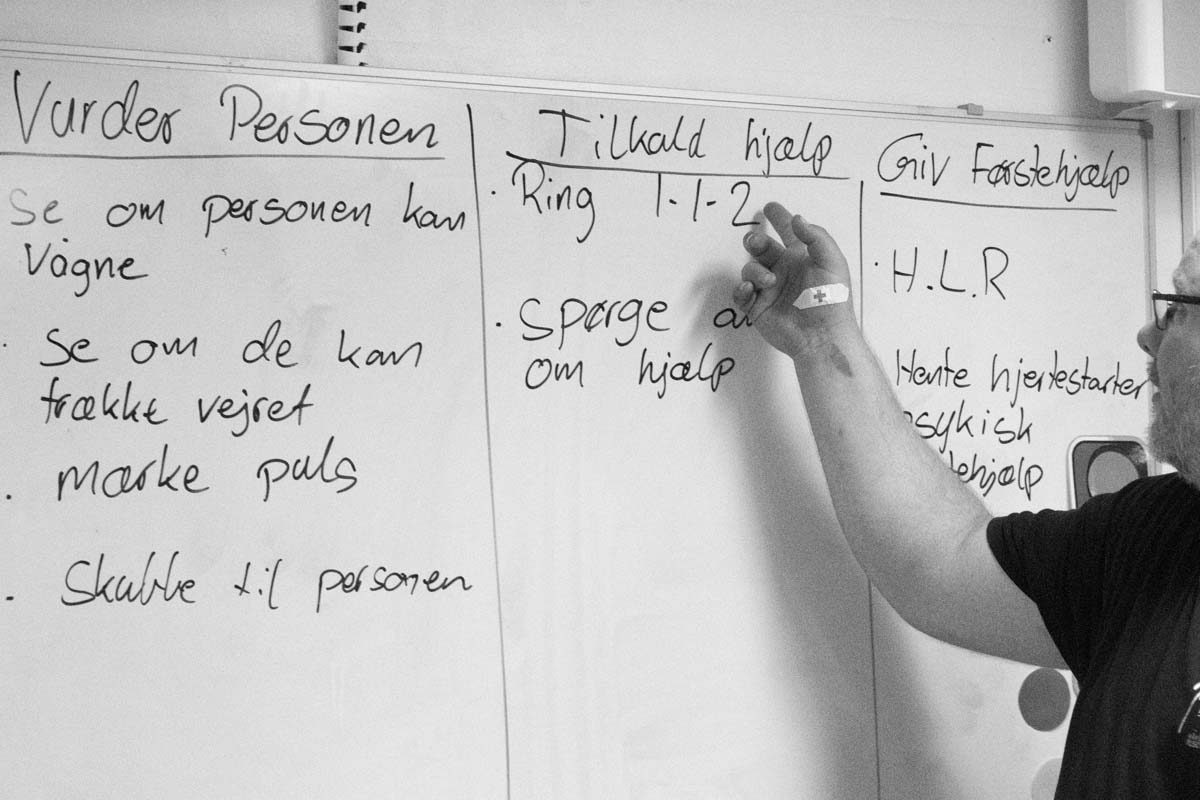 Vurder Personen
Se om personen kan
vågne
· Se om de kan
trække vejret
· mærke puls
· Skubbe til personen
Tilkald hjælp
· Ring 1-1-2
· Spørge
om hjælp
Giv Førstehjælp
· H.L.R
Hente hjertestarter